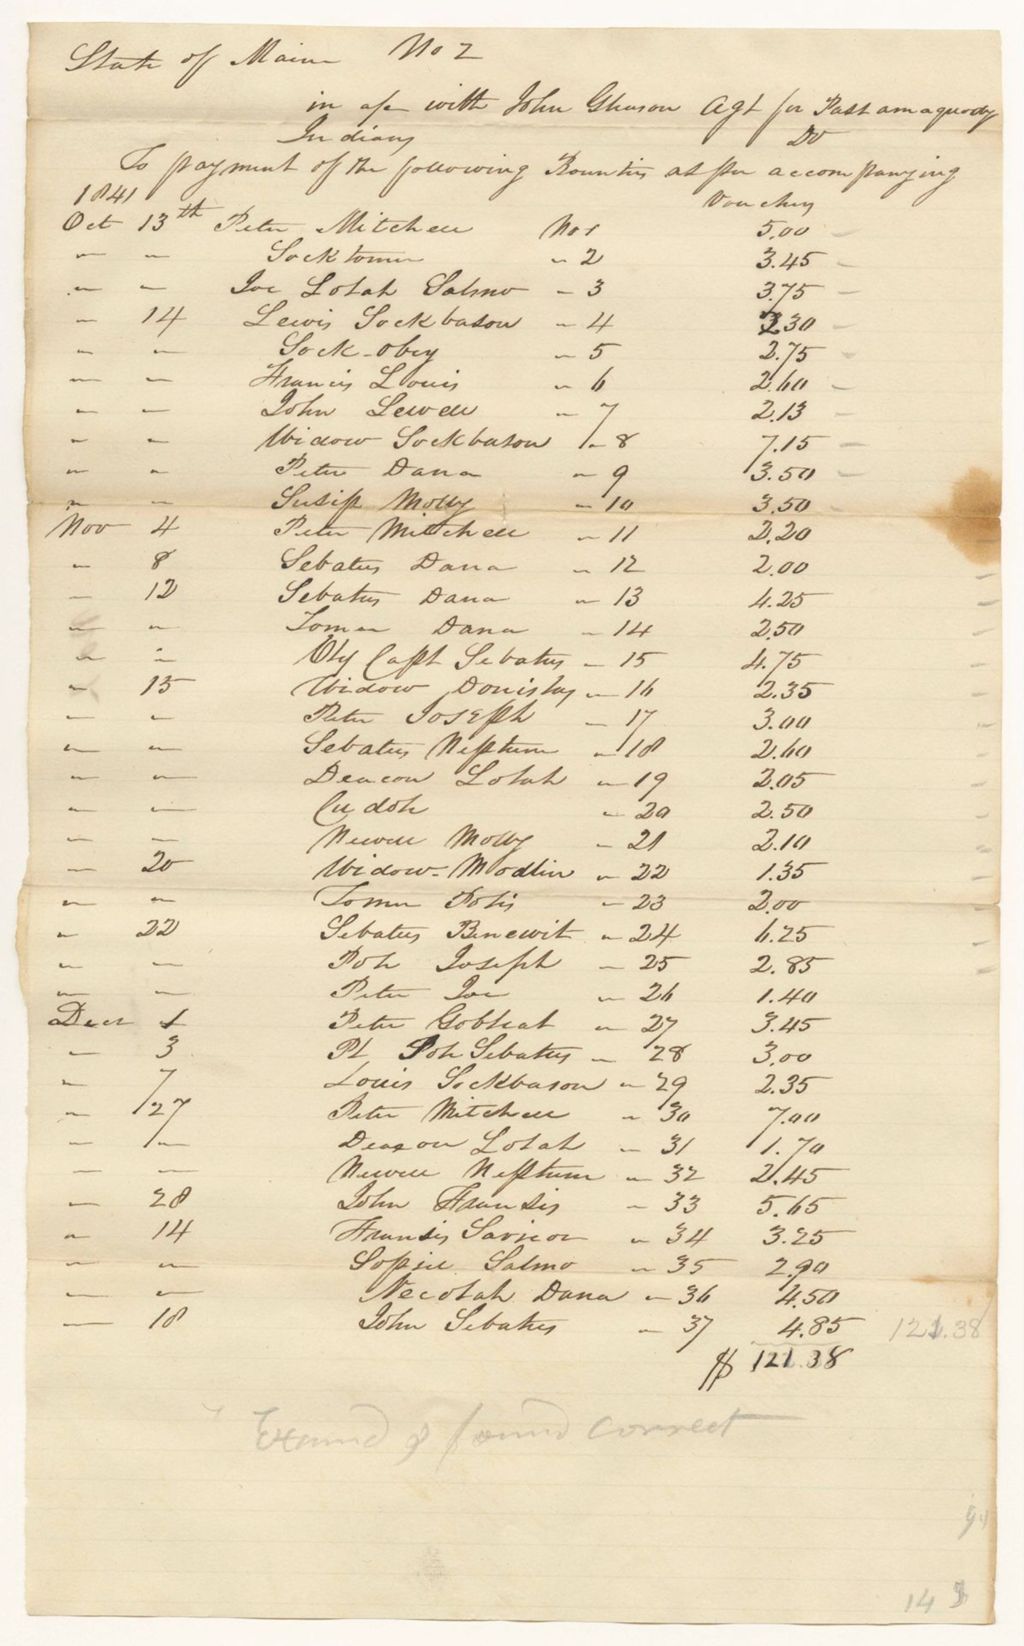 State of Maine No 2
in a/c with John Gleason Agt for Passamaquody
Indians Dr
To payment of the following Bounties as per accompanying
1841 Vouchers
Oct 13th Peter Mitchell No 1 5.00
" " Socktomer " 2 3.45
" " Joe Lolah Salmo " 3 3.75
" 14 Lewis Sockbason " 4 3.30
" " Sock-oby " 5 2.75
" " Francis Louis " 6 2.60
" " John Lewell " 7 2.13
" " Widow Sockbason " 8 7.15
" " Peter Dana " 9 3.50
" " Susip Molly " 10 3.50
Nov 4 Peter Mitchell " 11 2.20
" 8 Sebatus Dana " 12 2.00
" 12 Sebatus Dana " 13 4.25
" " Tomer Dana " 14 2.50
" " Capt Sebatus " 15 4.75
" 15 Widow " 16 2.35
" " Peter Joseph " 17 3.00
" " Sebatus Neptune " 18 2.60
" " Deacon Lolah " 19 2.05
" " Cudoh " 20 2.50
" " Newell Molly " 21 2.10
" 20 Widow Modlin " 22 1.35
" " Tomer Polis " 23 2.00
" 22 Sebatus Benewit " 24 6.25
" " Pol Joseph " 25 2.85
" " Peter Joe " 26 1.40
Decr 1 Peter Gobleat " 27 3.45
" 3 Pl Pol Sebatus " 28 3.00
" 7 Louis Sockbason " 29 2.35
" 27 Peter Mitchell " 30 7.00
" " Deacon Lolah " 31 1.70
" " Newell Neptune " 32 2.45
" 28 John Fransis " 33 5.65
" 14 Fransis Savieor " 34 3.25
" " Sopiel Salmo " 35 2.90
" " Necolah Dana " 36 4.50
" 18 John Sebatus " 37 4.85 121.38
$ 121.38
Examd & found correct
14